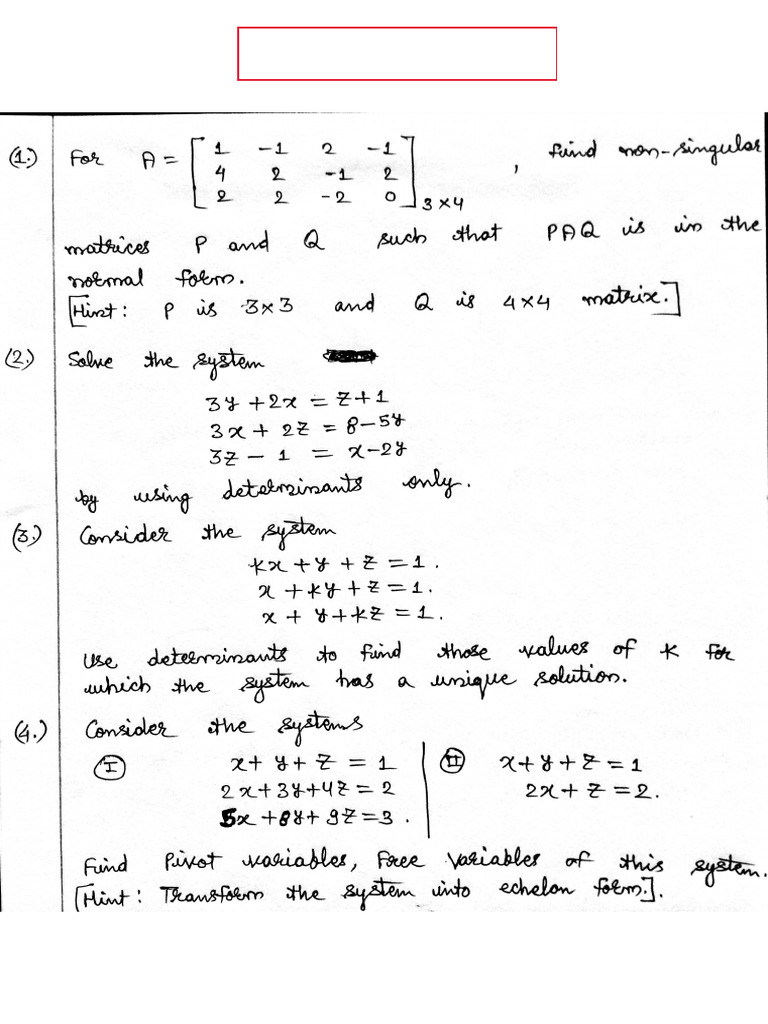 (1.) For A = [ 1 -1 2 -1 , find non-singular
4 2 -1 2
2 2 -2 0 ] 3×4
matrices P and Q such that PAQ is in the
normal form.
[Hint: P is 3×3 and Q is 4×4 matrix.]
(2.) Solve the system
3y + 2x = z + 1
3x + 2z = 8 - 5y
3z - 1 = x - 2y
by using determinants only.
(3.) Consider the system
kx + y + z = 1.
x + ky + z = 1.
x + y + kz = 1.
Use determinants to find those values of k for
which the system has a unique solution.
(4.) Consider the systems
(I) x + y + z = 1 | (II) x + y + z = 1
2x + 3y + 4z = 2 | 2x + z = 2.
5x + 8y + 9z = 3. |
Find Pivot variables, Free Variables of this system.
[Hint: Transform the system into echelon form.].